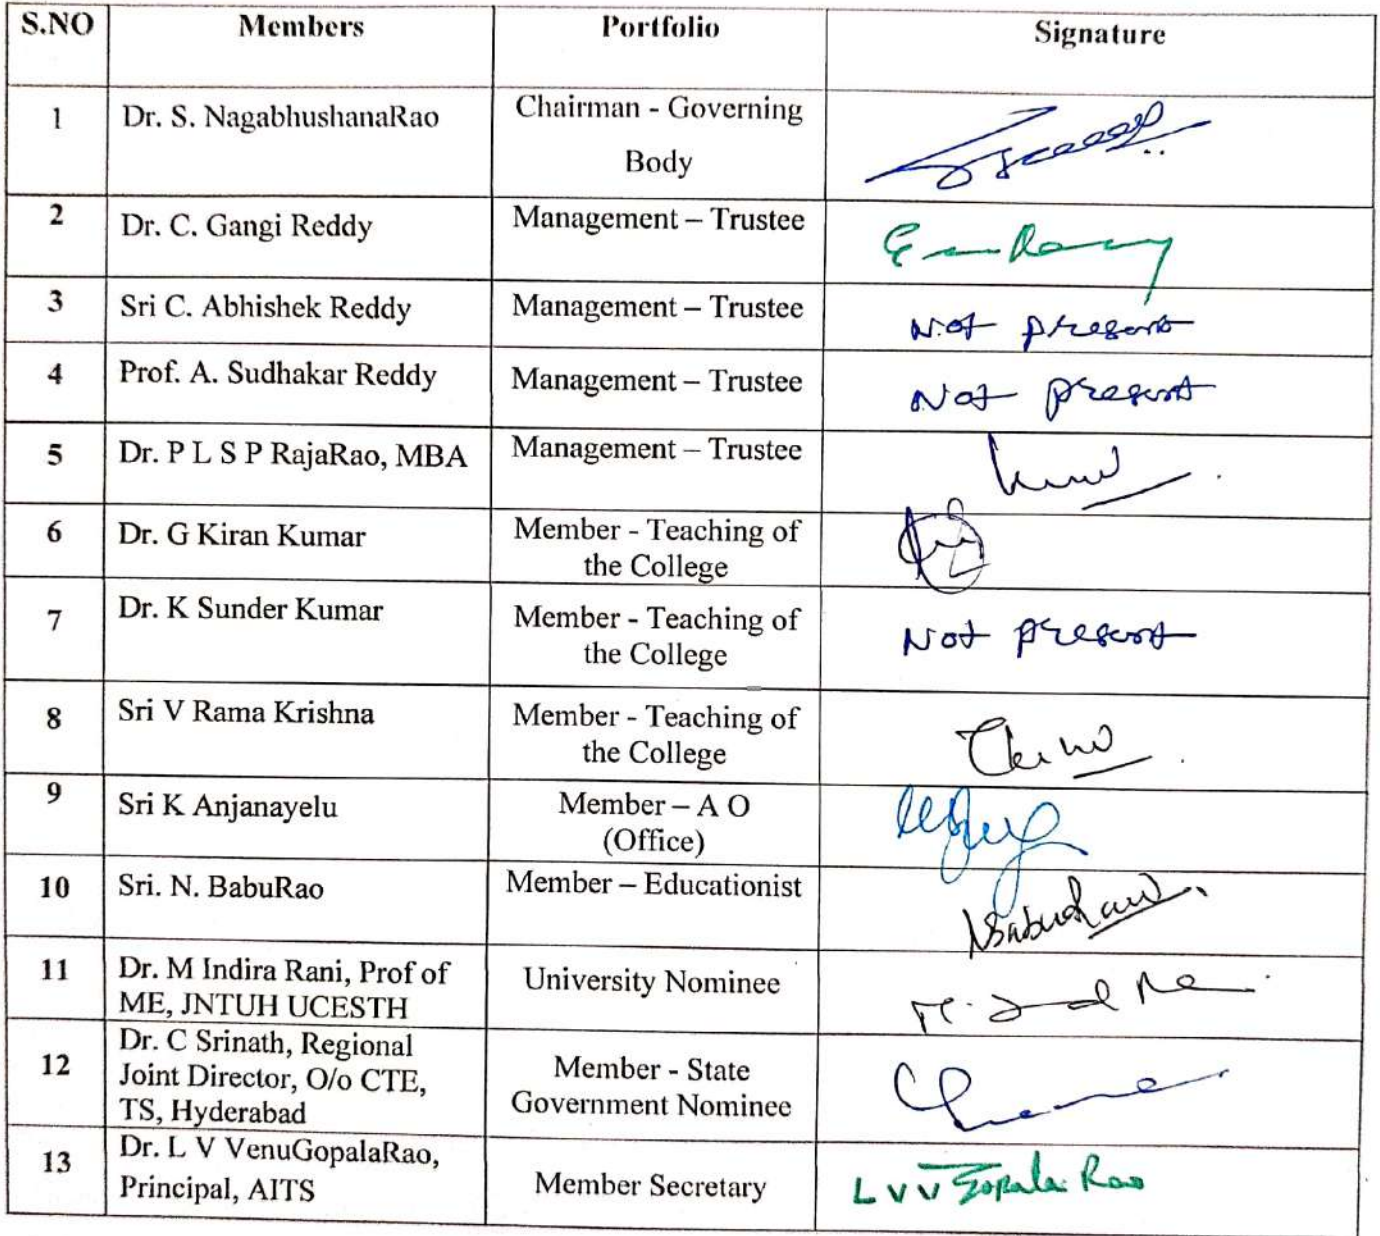 S.NO Members Portfolio Signature
1 Dr. S. NagabhushanaRao Chairman - Governing
Body
2 Dr. C. Gangi Reddy Management – Trustee
3 Sri C. Abhishek Reddy Management – Trustee Not present
4 Prof. A. Sudhakar Reddy Management – Trustee Not present
5 Dr. P L S P RajaRao, MBA Management – Trustee
6 Dr. G Kiran Kumar Member - Teaching of
the College
7 Dr. K Sunder Kumar Member - Teaching of
the College Not present
8 Sri V Rama Krishna Member - Teaching of
the College
9 Sri K Anjanayelu Member – A O
(Office)
10 Sri. N. BabuRao Member – Educationist NBabuRao
11 Dr. M Indira Rani, Prof of
ME, JNTUH UCESTH University Nominee
12 Dr. C Srinath, Regional
Joint Director, O/o CTE,
TS, Hyderabad Member - State
Government Nominee
13 Dr. L V VenuGopalaRao,
Principal, AITS Member Secretary L V V Gopala Rao